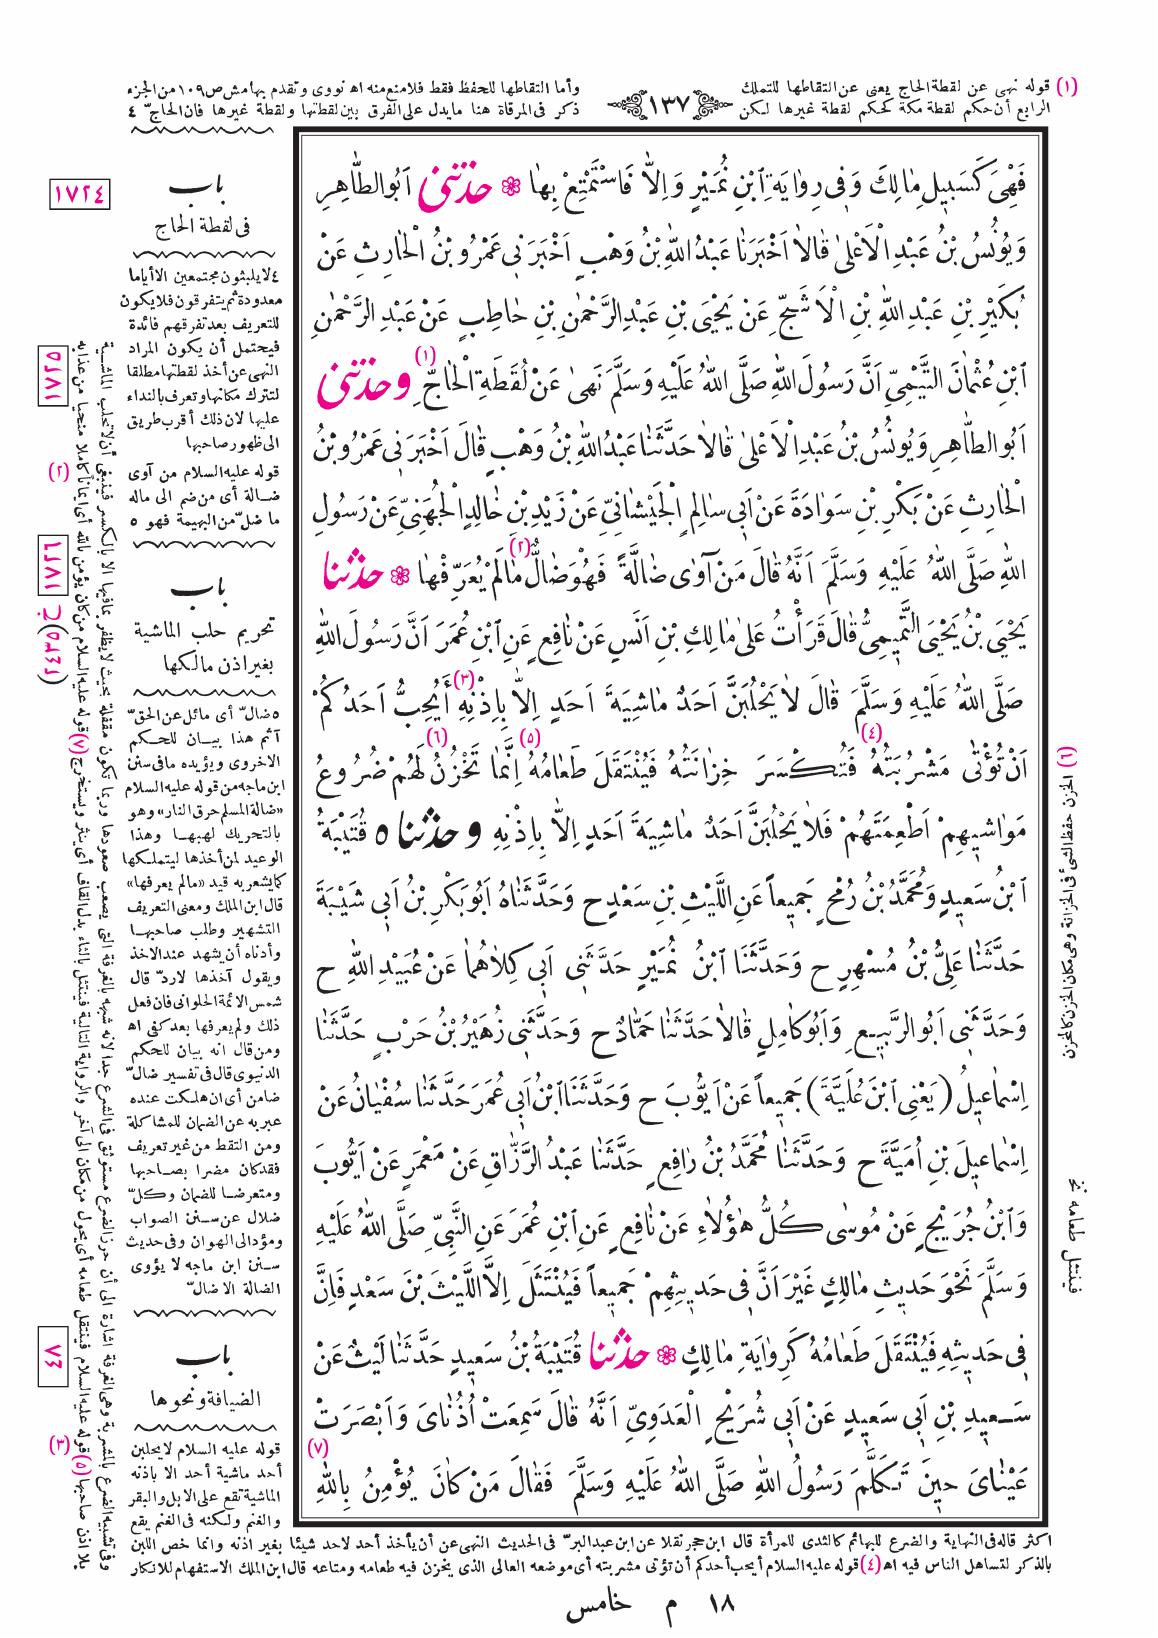 (١) قوله نهى عن لقطة الحاج يعنى عن التقاطها للتملك
وأما التقاطها للحفظ فقط فلا منع منه اه نووى وتقدم بهامش ص ١٠٩ من الجزء
١٣٧
الرابع أن حكم لقطة مكة كحكم لقطة غيرها لكن
ذكر فى المرقاة هنا مايدل على الفرق بين لقطتها ولقطة غيرها فان الحاجّ ٤
فَهْىَ كَسَبِيلِ مَالِكَ وَفِى رِوَايَةِ ابْنِ نُمَيْرٍ وَإِلَّا فَاسْتَمْتِعْ بِهَا ۞ حَدَّثَنِى اَبُوالطَّاهِرِ
وَيُونُسُ بْنُ عَبْدِ الْاَعْلىٰ قَالاَ اَخْبَرَنَا عَبْدُاللهِ بْنُ وَهْبٍ اَخْبَرَنِى عَمْرُو بْنُ الْحَارِثِ عَنْ
بُكَيْرِ بْنِ عَبْدِ اللهِ بْنِ الْاَشَجِّ عَنْ يَحْيَى بْنِ عَبْدِالرَّحْمٰنِ بْنِ حَاطِبٍ عَنْ عَبْدِ الرَّحْمٰنِ
ابْنِ عُثْمَانَ التَّيْمِىِّ اَنَّ رَسُولَ اللهِ صَلَّى اللهُ عَلَيْهِ وَسَلَّمَ نَهىٰ عَنْ لُقَطَةِ الْحَاجِّ (١) وَحَدَّثَنِى
اَبُوالطَّاهِرِ وَيُونُسُ بْنُ عَبْدِ الْاَعْلىٰ قَالاَ حَدَّثَنَا عَبْدُاللهِ بْنُ وَهْبٍ قَالَ اَخْبَرَنِى عَمْرُو بْنُ
الْحَارِثِ عَنْ بَكْرِ بْنِ سَوَادَةَ عَنْ اَبِى سَالِمٍ الْجَيْشَانِىِّ عَنْ زَيْدِ بْنِ خَالِدٍ الْجُهَنِىِّ عَنْ رَسُولِ
اللهِ صَلَّى اللهُ عَلَيْهِ وَسَلَّمَ اَنَّهُ قَالَ مَنْ آوٰى ضَالَّةً فَهُوَ ضَالٌّ (٢) مَالَمْ يُعَرِّفْهَا ۞ حَدَّثَنَا
يَحْيَى بْنُ يَحْيَى التَّمِيمِىُّ قَالَ قَرَأْتُ عَلىٰ مَالِكِ بْنِ اَنَسٍ عَنْ نَافِعٍ عَنِ ابْنِ عُمَرَ اَنَّ رَسُولَ اللهِ
صَلَّى اللهُ عَلَيْهِ وَسَلَّمَ قَالَ لاَ يَحْلُبَنَّ اَحَدٌ مَاشِيَةَ اَحَدٍ اِلاَّ بِاِذْنِهِ (٣) أَيُحِبُّ اَحَدُكُمْ
اَنْ تُؤْتٰى مَشْرُبَتُهُ (٤) فَتُكْسَرَ خِزَانَتُهُ فَيُنْتَقَلَ (٥) طَعَامُهُ اِنَّمَا تَخْزُنُ (٦) لَهُمْ ضُرُوعُ
مَوَاشِيهِمْ اَطْعِمَتَهُمْ فَلاَ يَحْلُبَنَّ اَحَدٌ مَاشِيَةَ اَحَدٍ اِلاَّ بِاِذْنِهِ وحدثناه قُتَيْبَةُ
ابْنُ سَعِيدٍ وَمُحَمَّدُ بْنُ رُمْحٍ جَمِيعاً عَنِ اللَّيْثِ بْنِ سَعْدٍ ح وَحَدَّثَنَاهُ اَبُو بَكْرِ بْنُ اَبِى شَيْبَةَ
حَدَّثَنَا عَلِىُّ بْنُ مُسْهِرٍ ح وَحَدَّثَنَا ابْنُ نُمَيْرٍ حَدَّثَنِى اَبِى كِلاَهُمَا عَنْ عُبَيْدِ اللهِ ح
وَحَدَّثَنِى اَبُو الرَّبِيعِ وَاَبُوكَامِلٍ قَالاَ حَدَّثَنَا حَمَّادٌ ح وَحَدَّثَنِى زُهَيْرُ بْنُ حَرْبٍ حَدَّثَنَا
اِسْمَاعِيلُ (يَعْنِى ابْنَ عُلَيَّةَ) جَمِيعاً عَنْ اَيُّوبَ ح وَحَدَّثَنَا ابْنُ اَبِى عُمَرَ حَدَّثَنَا سُفْيَانُ عَنْ
اِسْمَاعِيلَ بْنِ اُمَيَّةَ ح وَحَدَّثَنَا مُحَمَّدُ بْنُ رَافِعٍ حَدَّثَنَا عَبْدُ الرَّزَّاقِ عَنْ مَعْمَرٍ عَنْ اَيُّوبَ
وَابْنُ جُرَيْجٍ عَنْ مُوسٰى كُلُّ هٰؤُلاَءِ عَنْ نَافِعٍ عَنِ ابْنِ عُمَرَ عَنِ النَّبِىِّ صَلَّى اللهُ عَلَيْهِ
وَسَلَّمَ نَحْوَ حَدِيثِ مَالِكٍ غَيْرَ اَنَّ فِى حَدِيثِهِمْ جَمِيعاً فَيُنْتَثَلَ اِلاَّ اللَّيْثَ بْنَ سَعْدٍ فَاِنَّ
فِى حَدِيثِهِ فَيُنْتَقَلَ طَعَامُهُ كَرِوَايَةِ مَالِكٍ ۞ حَدَّثَنَا قُتَيْبَةُ بْنُ سَعِيدٍ حَدَّثَنَا لَيْثٌ عَنْ
سَعِيدِ بْنِ اَبِى سَعِيدٍ عَنْ اَبِى شُرَيْحٍ الْعَدَوِىِّ اَنَّهُ قَالَ سَمِعَتْ اُذُنَاىَ وَاَبْصَرَتْ
عَيْنَاىَ حِينَ تَكَلَّمَ رَسُولُ اللهِ صَلَّى اللهُ عَلَيْهِ وَسَلَّمَ فَقَالَ مَنْ كَانَ يُؤْمِنُ بِاللهِ (٧)
١٧٢٤
باب
فى لقطة الحاج
٤ لا يلبثون مجتمعين الا أياما
معدودة ثم يتفرقون فلا يكون
للتعريف بعد تفرقهم فائدة
فيحتمل أن يكون المراد
النهى عن أخذ لقطتها مطلقا
لتترك مكانها وتعرف بالنداء
عليها لان ذلك أقرب طريق
الى ظهور صاحبها
(٢) قوله عليه السلام من آوى
ضالة أى من ضم الى ماله
ما ضلّ من البهيمة فهو ٥
باب
تحريم حلب الماشية
بغير اذن مالكها
٥ ضالّ أى مائل عن الحقّ
آثم هذا بيان للحكم
الاخروى ويؤيده مافى سنن
ابن ماجه من قوله عليه السلام
«ضالة المسلم حرق النار» وهو
بالتحريك لهبها وهذا
الوعيد لمن أخذها ليتملكها
كمايشعر به قيد «مالم يعرفها»
قال ابن الملك ومعنى التعريف
التشهير وطلب صاحبها
وأدناه أن يشهد عند الاخذ
ويقول آخذها لاردّ قال
شمس الائمة الحلوانى فان فعل
ذلك ولم يعرفها بعد كفى اه
ومن قال انه بيان للحكم
الدنيوى قال فى تفسير ضالّ
ضامن أى ان هلكت عنده
عبر به عن الضمان للمشاكلة
ومن التقط من غير تعريف
فقد كان مضرا بصاحبها
ومتعرضا للضمان وكلّ
ضلال عن سنن الصواب
ومؤد الى الهوان وفى حديث
سنن ابن ماجه لا يؤوى
الضالة الا ضالّ
باب
الضيافة ونحوها
(٣) قوله عليه السلام لا يحلبن
أحد ماشية أحد الا باذنه
الماشية تقع على الابل والبقر
والغنم ولكنه فى الغنم يقع
اكثر قاله فى النهاية والضرع للبهائم كالثدى للمرأة قال ابن حجر نقلا عن ابن عبدالبرّ فى الحديث النهى عن أن يأخذ أحد لاحد شيئا بغير اذنه وانما خص اللبن
بالذكر لتساهل الناس فيه اه (٤) قوله عليه السلام أيحب أحدكم أن تؤتى مشربته أى موضعه العالى الذى يخزن فيه طعامه ومتاعه قال ابن الملك الاستفهام للانكار
وفى تشبيه الضرع بالمشربة وهى الغرفة اشارة الى أن حرز الضرع مستوثق فى الشرع جدا لانه شبهه بالغرفة التى يصعب صعودها وربما تكون مقفلة بحيث لا يظفر بما فيها الا بالكسر فينبغى أن لا تحلب الماشية
بلا اذن صاحبها (٥) قوله عليه السلام فينتقل طعامه أى يحول من مكان الى آخر والرواية التالية فينتثل بالثاء بدل القاف أى ينثر ويستخرج (٧) قوله عليه السلام من كان يؤمن بالله أى ايمانا كاملا منجيا من عذابه
(٦) الخزن حفظ الشئ فى الخزانة وهى مكان الخزن كالمخزن
فينتثل طعامه نخ
١٨ م خامس